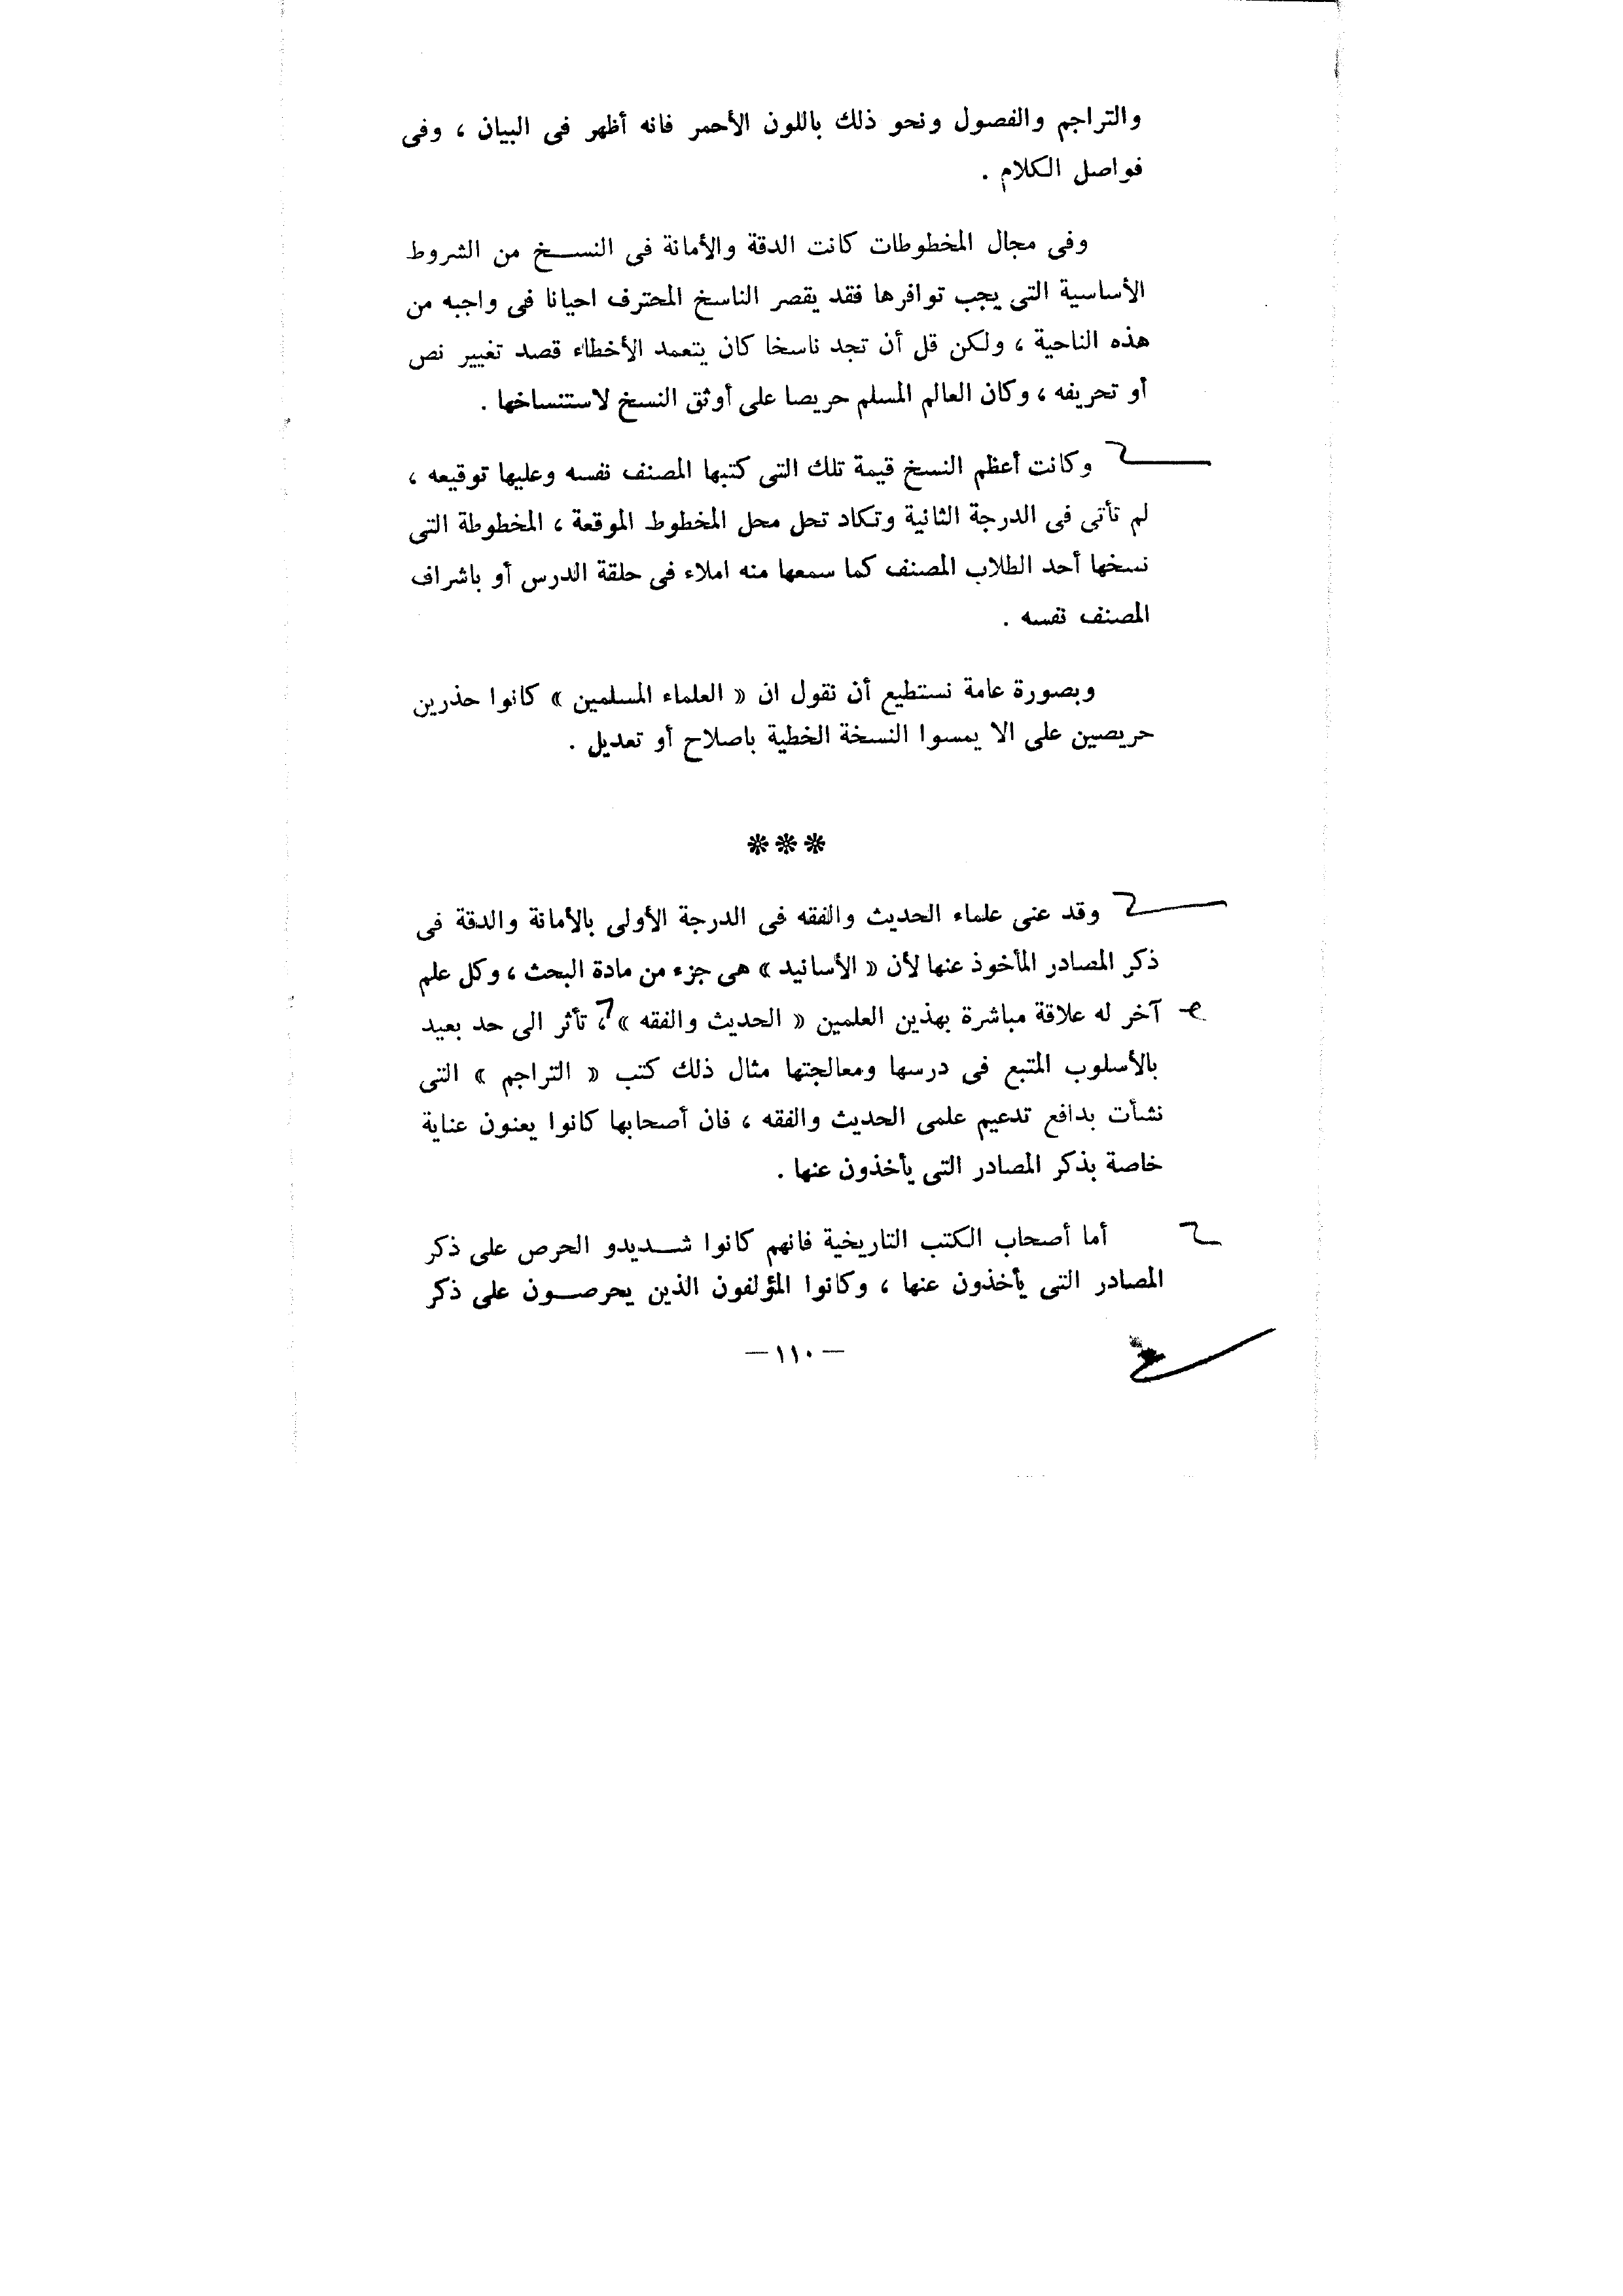 والتراجم والفصول ونحو ذلك باللون الأحمر فانه أظهر فى البيان ، وفى
فواصل الكلام .
وفى مجال المخطوطات كانت الدقة والأمانة فى النســخ من الشروط
الأساسية التى يجب توافرها فقد يقصر الناسخ المحترف احيانا فى واجبه من
هذه الناحية ، ولكن قل أن تجد ناسخا كان يتعمد الأخطاء قصد تغيير نص
أو تحريفه ، وكان العالم المسلم حريصا على أوثق النسخ لاستنساخها .
وكانت أعظم النسخ قيمة تلك التى كتبها المصنف نفسه وعليها توقيعه ،
لم تأتى فى الدرجة الثانية وتكاد تحل محل المخطوط الموقعة ، المخطوطة التى
نسخها أحد الطلاب المصنف كما سمعها منه املاء فى حلقة الدرس أو باشراف
المصنف نفسه .
وبصورة عامة نستطيع أن نقول ان « العلماء المسلمين » كانوا حذرين
حريصين على الا يمسوا النسخة الخطية باصلاح أو تعديل .
***
وقد عنى علماء الحديث والفقه فى الدرجة الأولى بالأمانة والدقة فى
ذكر المصادر المأخوذ عنها لأن « الأسانيد » هى جزء من مادة البحث ، وكل علم
آخر له علاقة مباشرة بهذين العلمين « الحديث والفقه » ، تأثر الى حد بعيد
بالأسلوب المتبع فى درسها ومعالجتها مثال ذلك كتب « التراجم » التى
نشأت بدافع تدعيم علمى الحديث والفقه ، فان أصحابها كانوا يعنون عناية
خاصة بذكر المصادر التى يأخذون عنها .
أما أصحاب الكتب التاريخية فانهم كانوا شــديدو الحرص على ذكر
المصادر التى يأخذون عنها ، وكانوا المؤلفون الذين يحرصــون على ذكر
— ١١٠ —